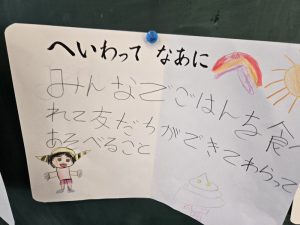 へいわって なあに
みんなでごはんを食べ
れて友だちができてわらって
あそべること